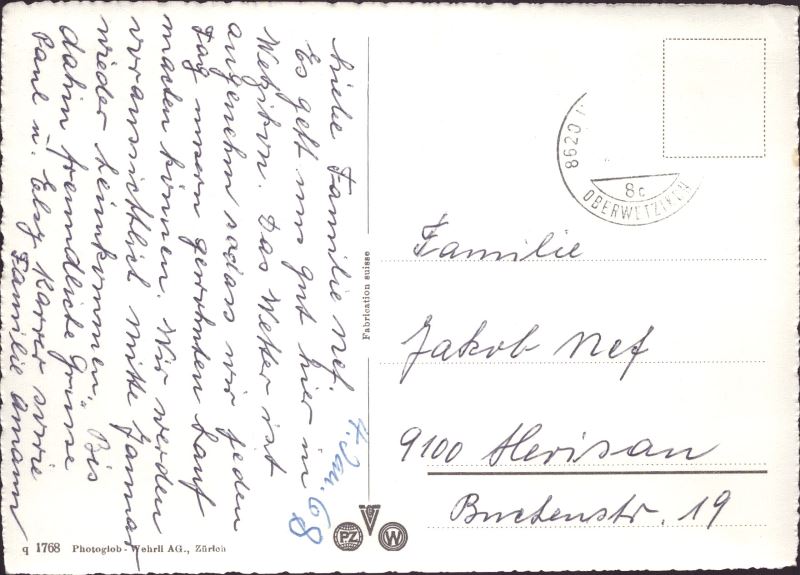 Liebe Familie Nef.
Es geht uns gut hier in
Wetzikon. Das Wetter ist
angenehm sodass wir jeden
Tag unsern gewohnten Lauf
machen können. Wir werden
voraussichtlich Mitte Januar
wieder heimkommen. Bis
dahin freundliche Grüsse
Paul u. Elsy Karrer sowie
Familie Amann
7. Jan. 68
Fabrication suisse
8620
8c
OBERWETZIKON
Familie
Jakob Nef
9100 Herisau
Buchenstr. 19
PZ
G
W
q 1768 Photoglob-Wehrli AG., Zürich